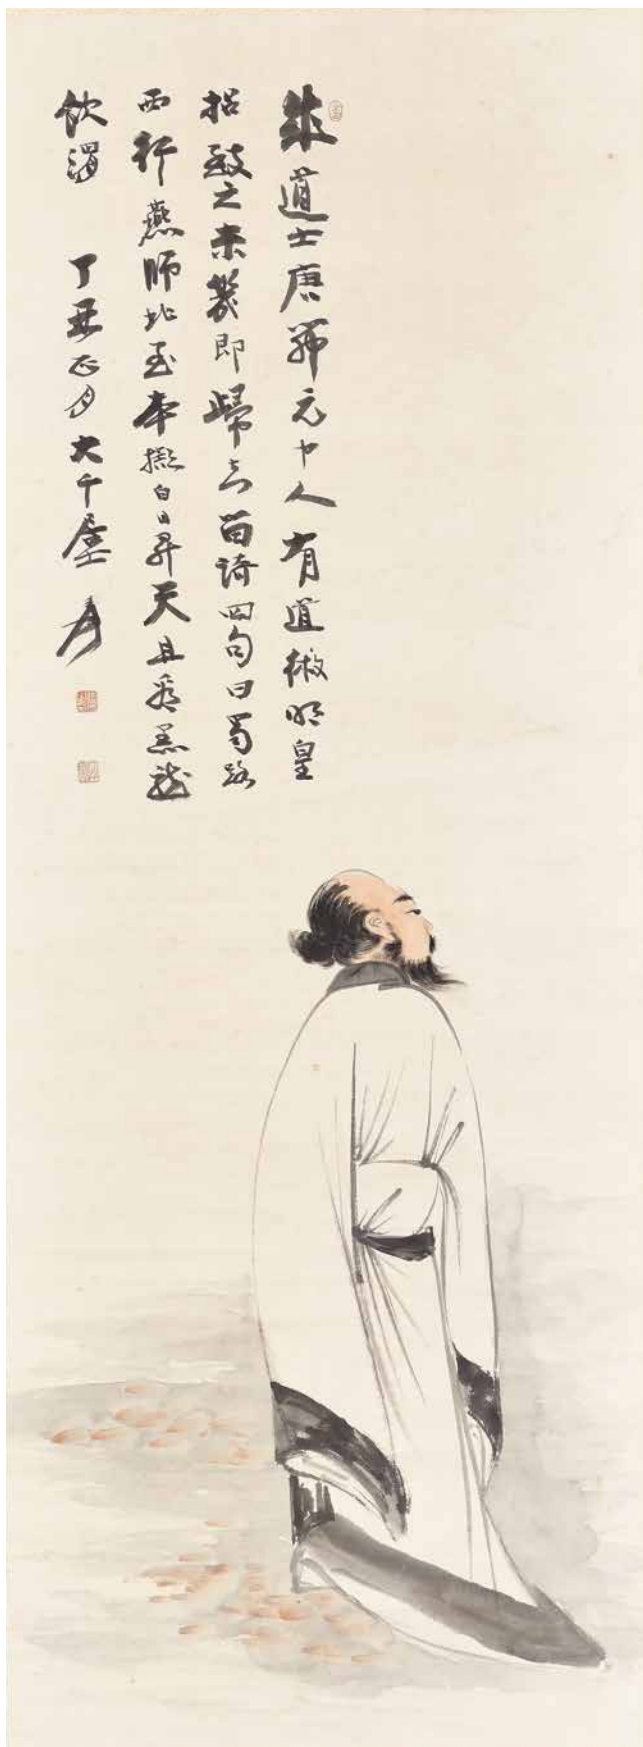 成道士唐開元中人有道術明皇
招致之未幾即歸去留詩四句曰蜀路
西行燕師北至本擬白日升天且看黑龍
飲渭 丁亥正月大千居士爰